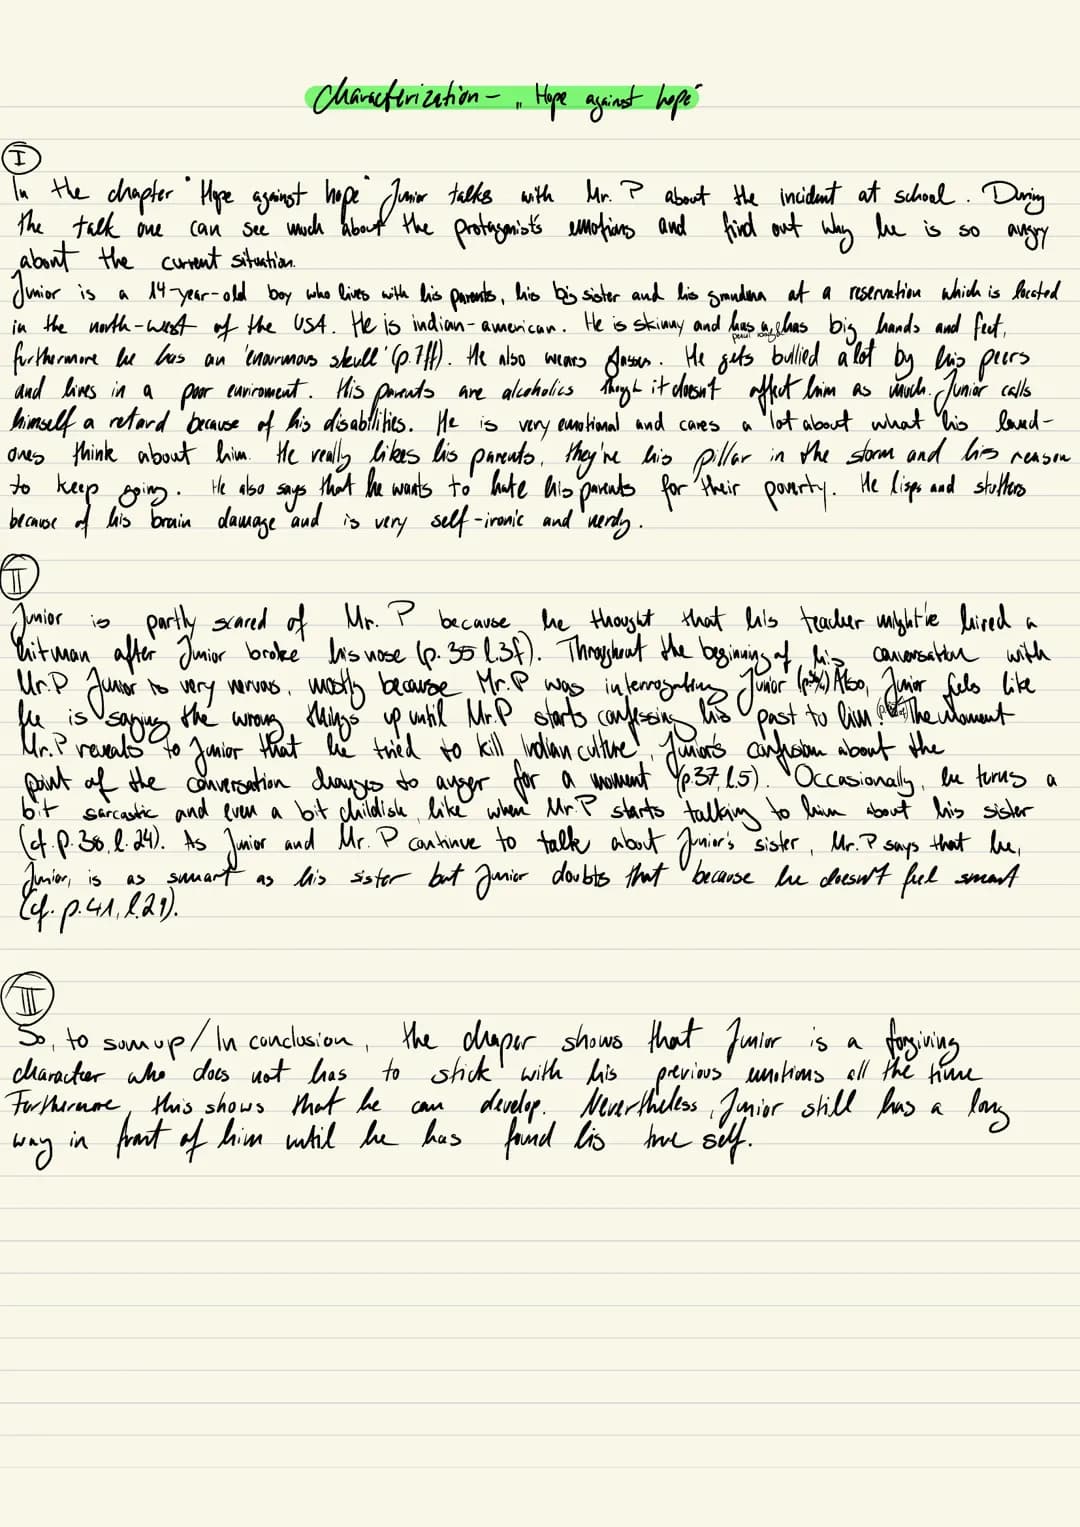 Characterization - „Hope against hope"
I
In the chapter "Hope against hope" Junior talks with Mr. P about the incident at school. During
the talk one can see much about the protagonist's emotions and find out why he is so angry
about the current situation.
Junior is a 14-year-old boy who lives with his parents, his big sister and his grandma at a reservation which is located
in the north-west of the USA. He is indian-american. He is skinny and has big hands and feet,
furthermore he has an 'enourmous skull' (p.7ff). He also wears glasses. He gets bullied a lot by his peers
and lives in a poor enviroment. His parents are alcoholics though it doesn't affect him as much. Junior calls
himself a retard because of his disabilities. He is very emotional and cares a lot about what his loved-
ones think about him. He really likes his parents, they're his pillar in the storm and his reason
to keep going. He also says that he wants to hate his parents for their poverty. He lisps and stutters
because of his brain damage and is very self-ironic and nerdy.
II
Junior is partly scared of Mr. P because he thought that his teacher might've hired a
hitman after Junior broke his nose (p. 35 l.3f). Throughout the beginning of his conversation with
Mr.P Junior is very nervous, mostly because Mr.P was interrogating Junior Also, Junior feels like
he is saying the wrong things up until Mr.P starts confessing his past to him. The moment
Mr.P reveals to Junior that he tried to kill 'Indian culture', Junior's confusion about the
point of the conversation changes to anger for a moment (p.37, l.5). Occasionally, he turns a
bit sarcastic and even a bit childish, like when Mr.P starts talking to him about his sister
(cf. p.38, l.24). As Junior and Mr. P continue to talk about Junior's sister, Mr.P says that he,
Junior, is as smart as his sister but Junior doubts that because he doesn't feel smart
(cf. p.41, l.29).
III
So, to sum up/In conclusion, the chaper shows that Junior is a forgiving
character who does not has to stick with his previous emotions all the time
Furthermore, this shows that he can develop. Nevertheless, Junior still has a long
way in front of him until he has found his true self.